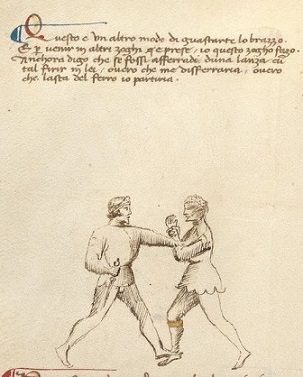 Questo e un altro modo di guastarte lo brazzo.
E p venir in altri zoghi q̃ e prese, io questo zogho fazo.
Anchora digo che se fossi afferrado duna lanza cũ
tal ferir in lei, overo che me disferraria, overo
che lasta del ferro io partiria.